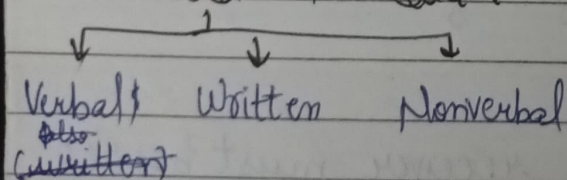 Verbal Written Nonverbal
Also
(written)